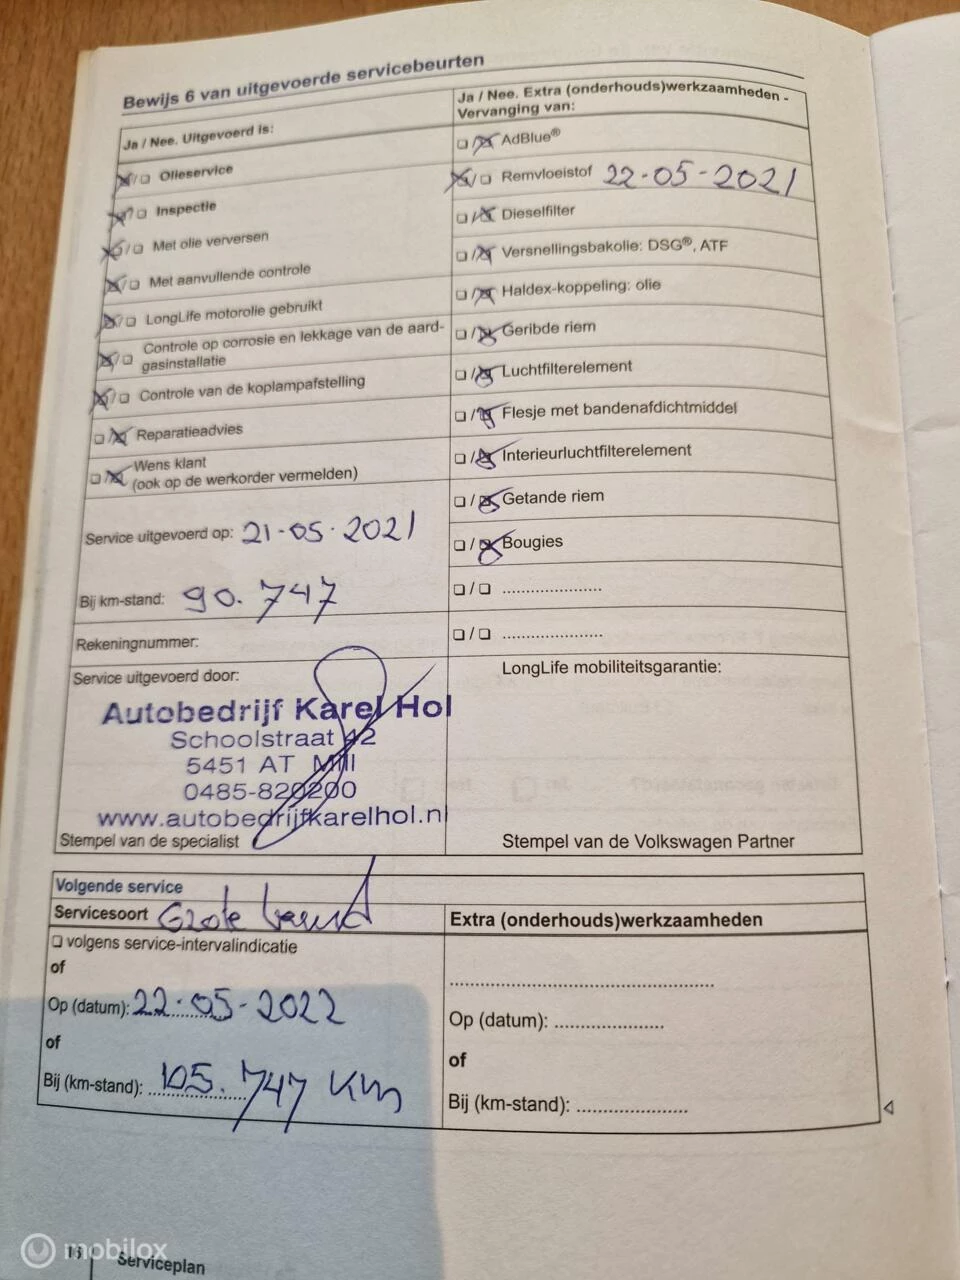 Bewijs 6 van uitgevoerde servicebeurten
Ja / Nee. Uitgevoerd is:
Olieservice
Inspectie
Met olie verversen
Met aanvullende controle
LongLife motorolie gebruikt
Controle op corrosie en lekkage van de aard-
gasinstallatie
Controle van de koplampafstelling
Reparatieadvies
Wens klant
(ook op de werkorder vermelden)
Service uitgevoerd op: 21-05-2021
Bij km-stand: 90.747
Rekeningnummer:
Service uitgevoerd door:
Autobedrijf Karel Hol
Schoolstraat 42
5451 AT Mill
0485-820200
www.autobedrijfkarelhol.nl
Stempel van de specialist
Ja / Nee. Extra (onderhouds)werkzaamheden -
Vervanging van:
AdBlue®
Remvloeistof 22-05-2021
Dieselfilter
Versnellingsbakolie: DSG®, ATF
Haldex-koppeling: olie
Geribde riem
Luchtfilterelement
Flesje met bandenafdichtmiddel
Interieurluchtfilterelement
Getande riem
Bougies
LongLife mobiliteitsgarantie:
Stempel van de Volkswagen Partner
Volgende service
Servicesoort Grote beurt
volgens service-intervalindicatie
of
Op (datum): 22-05-2022
of
Bij (km-stand): 105.747 km
Extra (onderhouds)werkzaamheden
Op (datum):
of
Bij (km-stand):
16 Serviceplan
mobilox